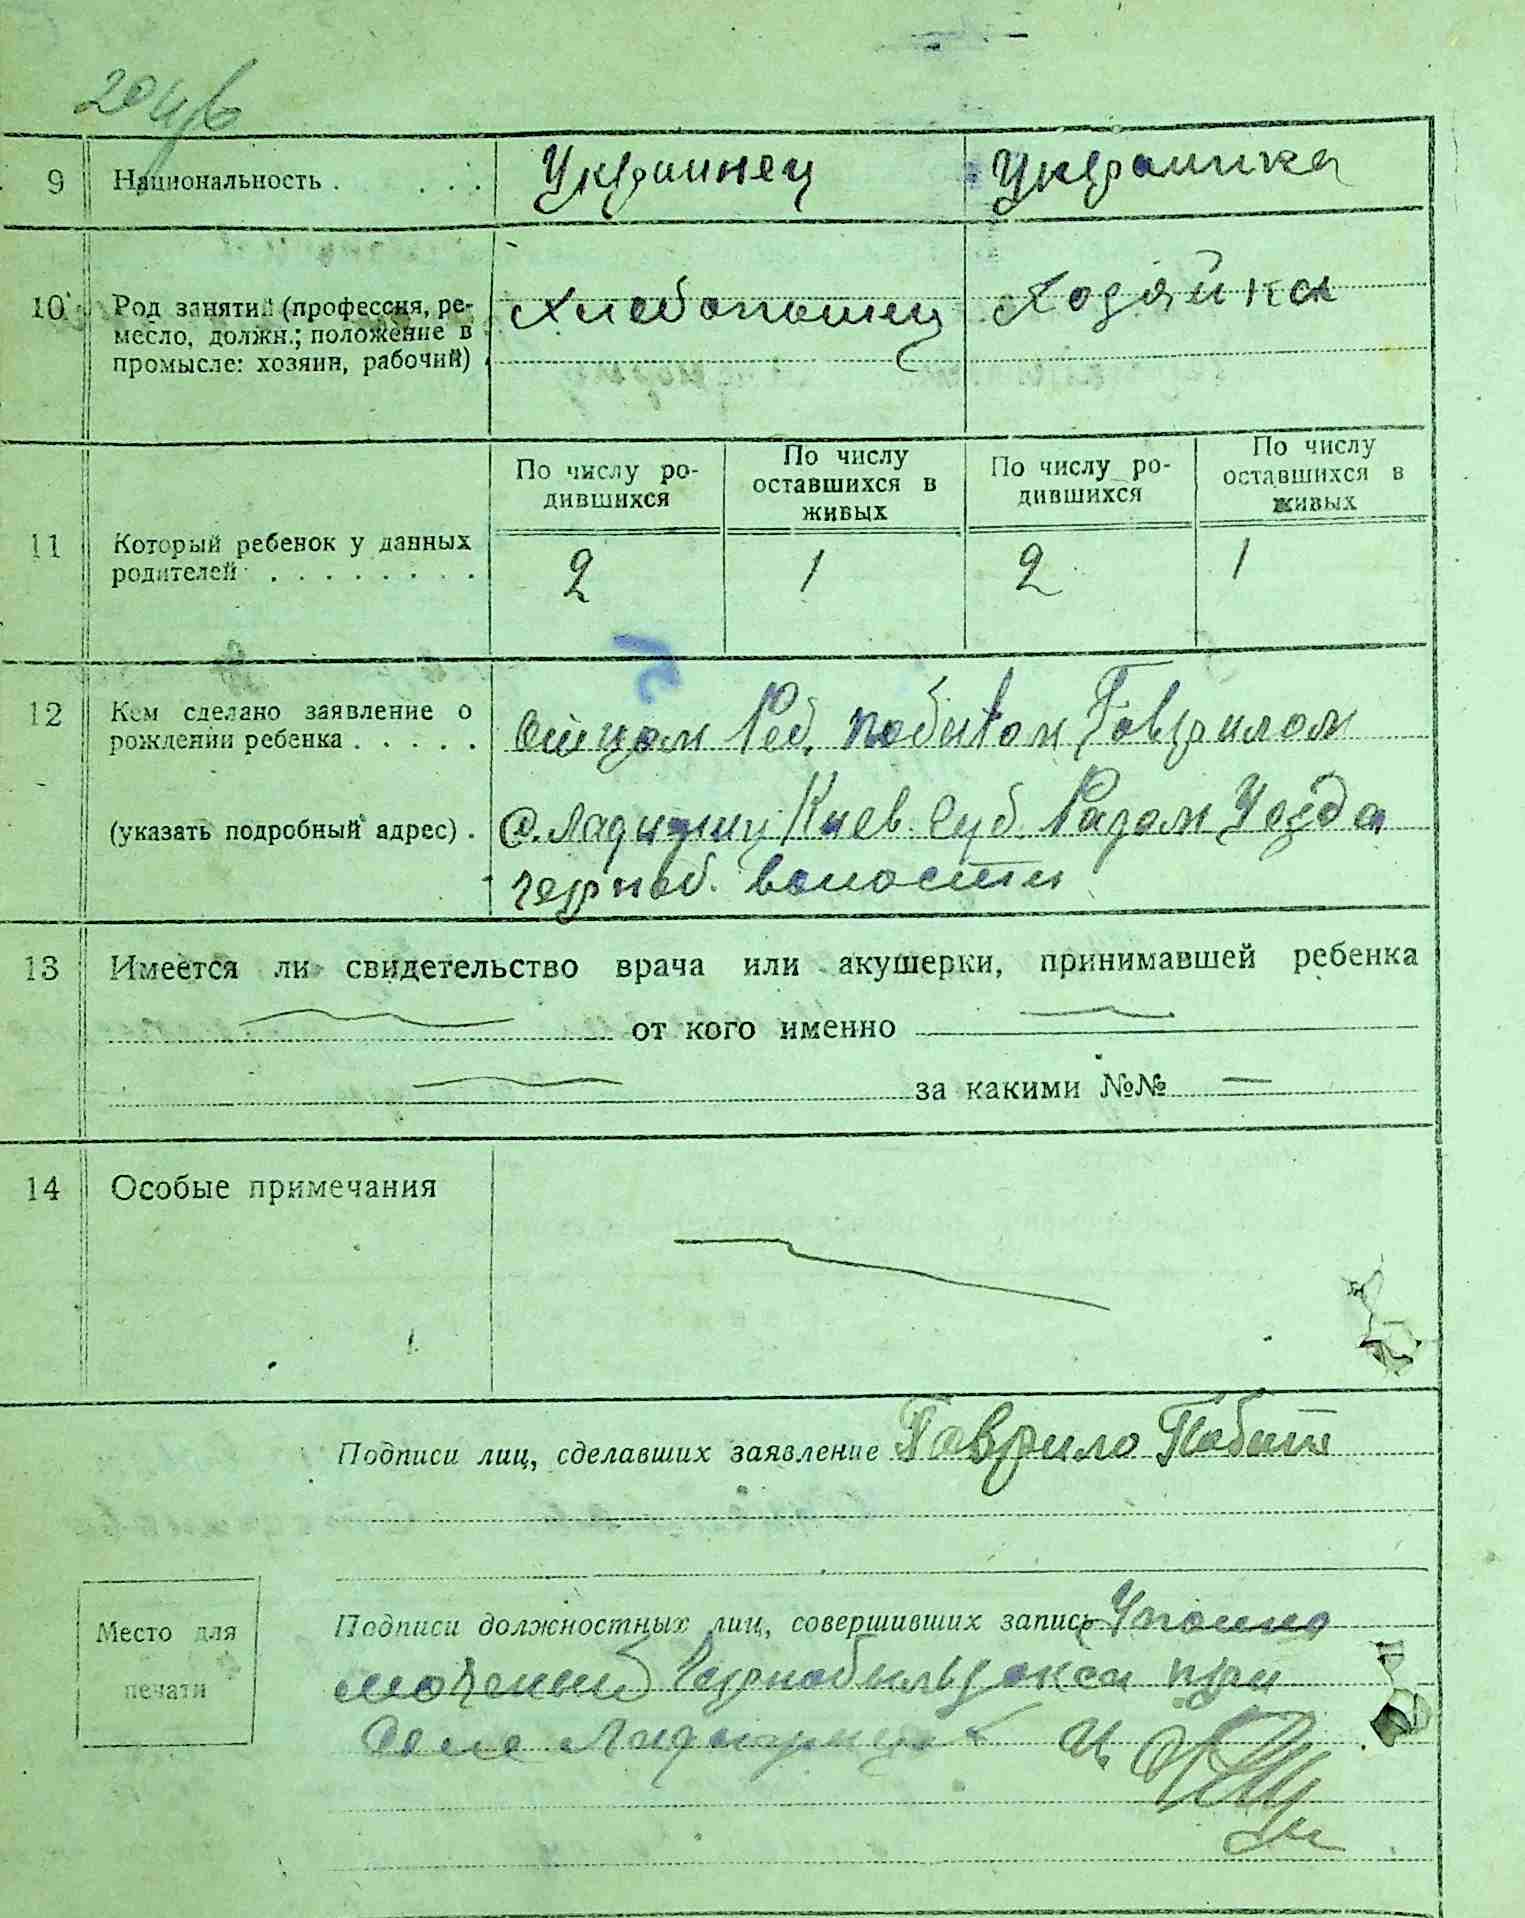 9 Национальность . . . . Украинец Украинка
10 Род занятий (профессия, ре-
месло, должн.; положение в
промысле: хозяин, рабочий)
Хлебопашец Хозяйка
По числу ро-
дившихся
По числу
оставшихся в
живых
По числу ро-
дившихся
По числу
оставшихся в
живых
11 Который ребенок у данных
родителей . . . . . . . .
2 1 2 1
12 Кем сделано заявление о
рождении ребенка . . . . .
Отцом Реб. Побитом Гаврилом
(указать подробный адрес) .
с. Ладыжич Киев. Губ. Радом Уезда
черноб. волости
13 Имеется ли свидетельство врача или акушерки, принимавшей ребенка
от кого именно
за какими №№ —
14 Особые примечания
Подписи лиц, сделавших заявление Гаврило Побит
Подписи должностных лиц, совершивших запись Уполно
моченый при
Место для
печати
селе